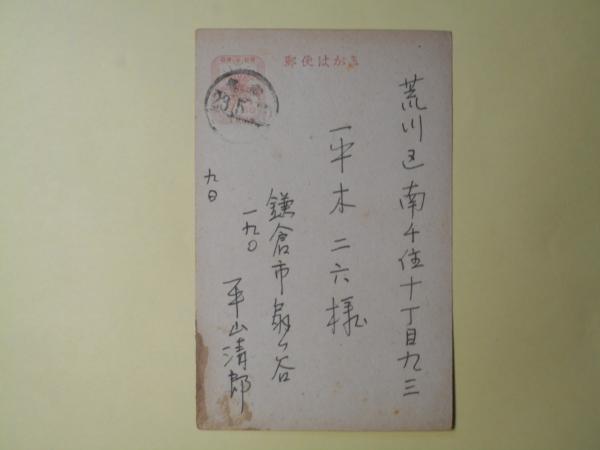 郵便はがき
荒川区南千住十丁目九三
平木二六様
鎌倉市扇ヶ谷
一九〇
平山清郎
九日
23.5